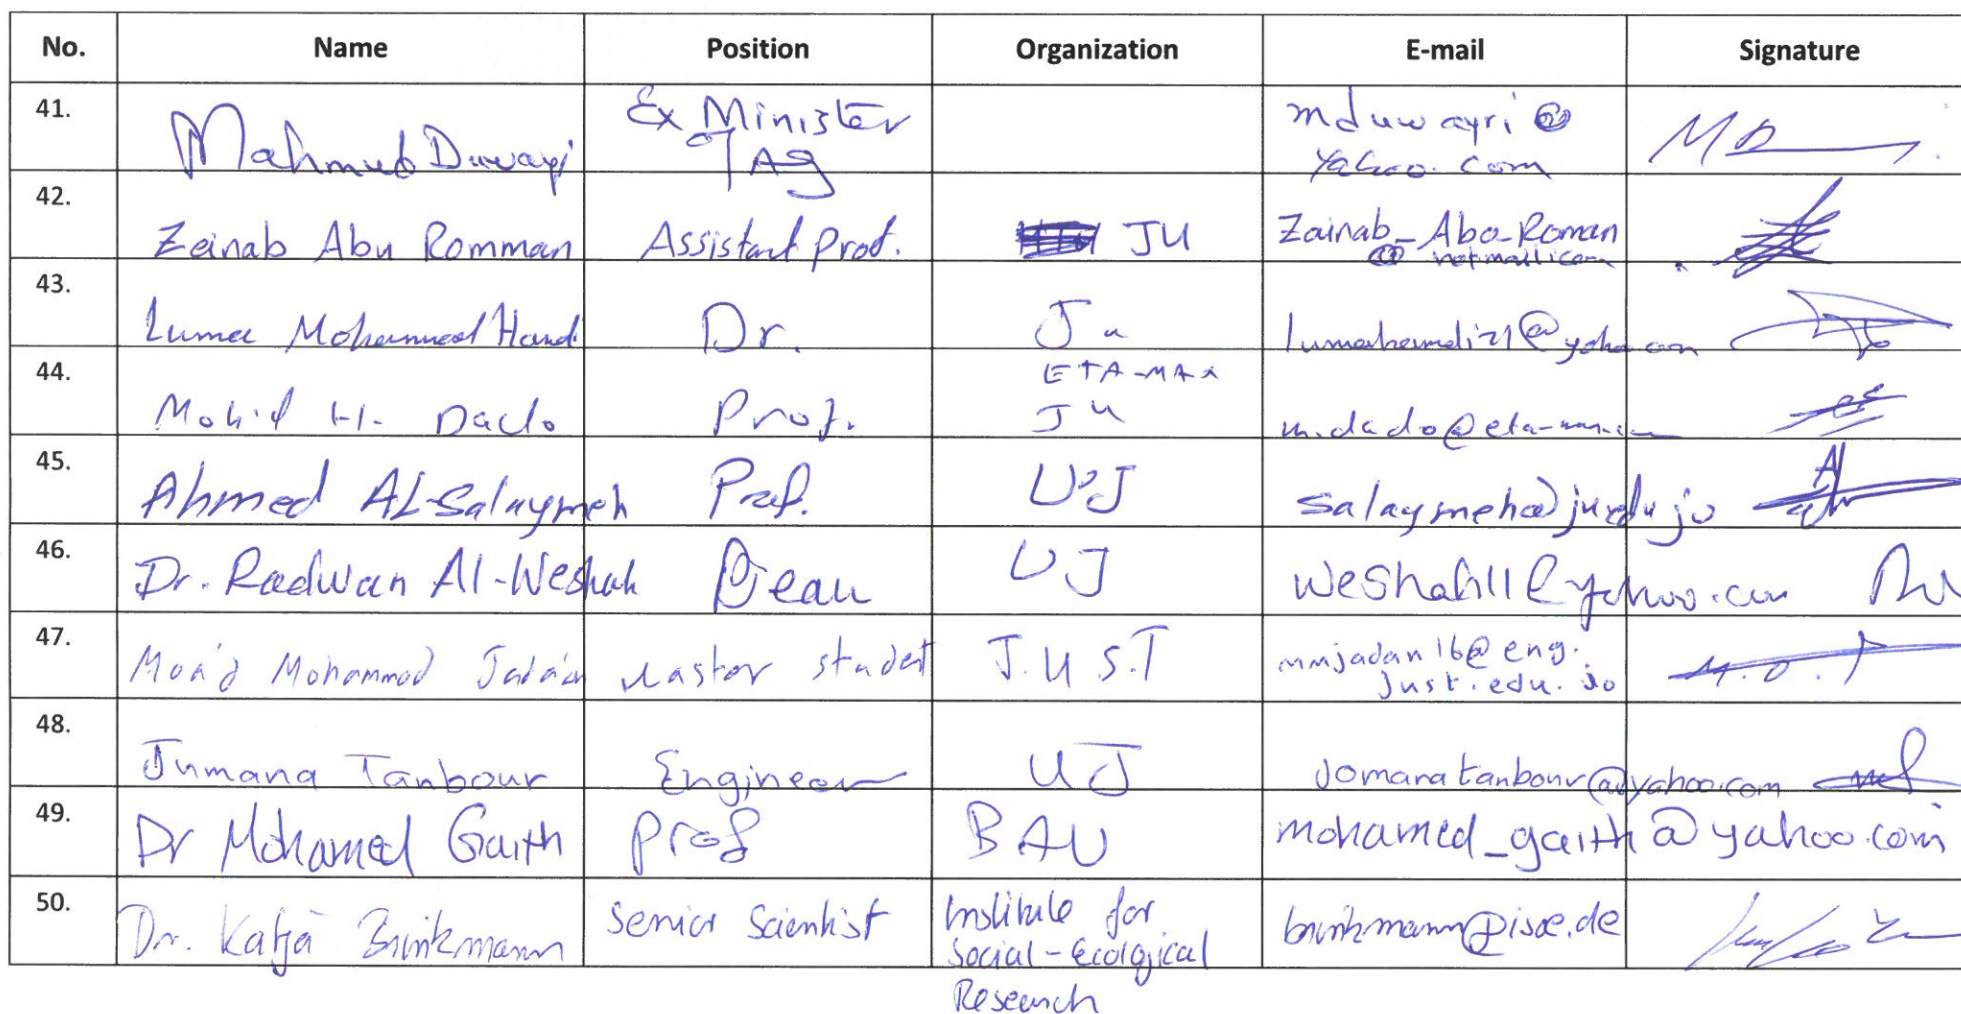 No. Name Position Organization E-mail Signature
41. Mahmud Duwayri Ex Minister of Ag mduwayri@
yahoo.com
42. Zeinab Abu Romman Assistant Prof. JU Zainab_Abo-Roman
@hotmail.com
43. Luma Mohammed Hamdi Dr. Ju @yahoo.com
44. H. Dado Prof. ETA-MAX
JU m.dado@eta-max
45. Ahmed AL-Salaymeh Prof. UJ salaymeh@ju.edu.jo
46. Dr. Radwan Al-Weshah Dean UJ weshah11@yahoo.com
47. Moa'd Mohammad Jada'an Master student J.U.S.T mmjadan16@eng.
just.edu.jo
48. Jumana Tanbour Engineer UJ jomanatanbour@yahoo.com
49. Dr Mohamed Gaith Prof BAU mohamed_gaith@yahoo.com
50. Dr. Katja Brinkmann Senior Scientist Institute for
Social-Ecological
Research brinkmann@isoe.de